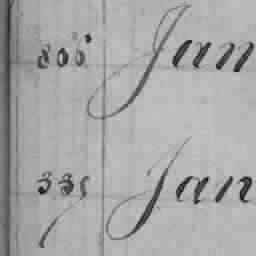 806 Jan
335 Jan